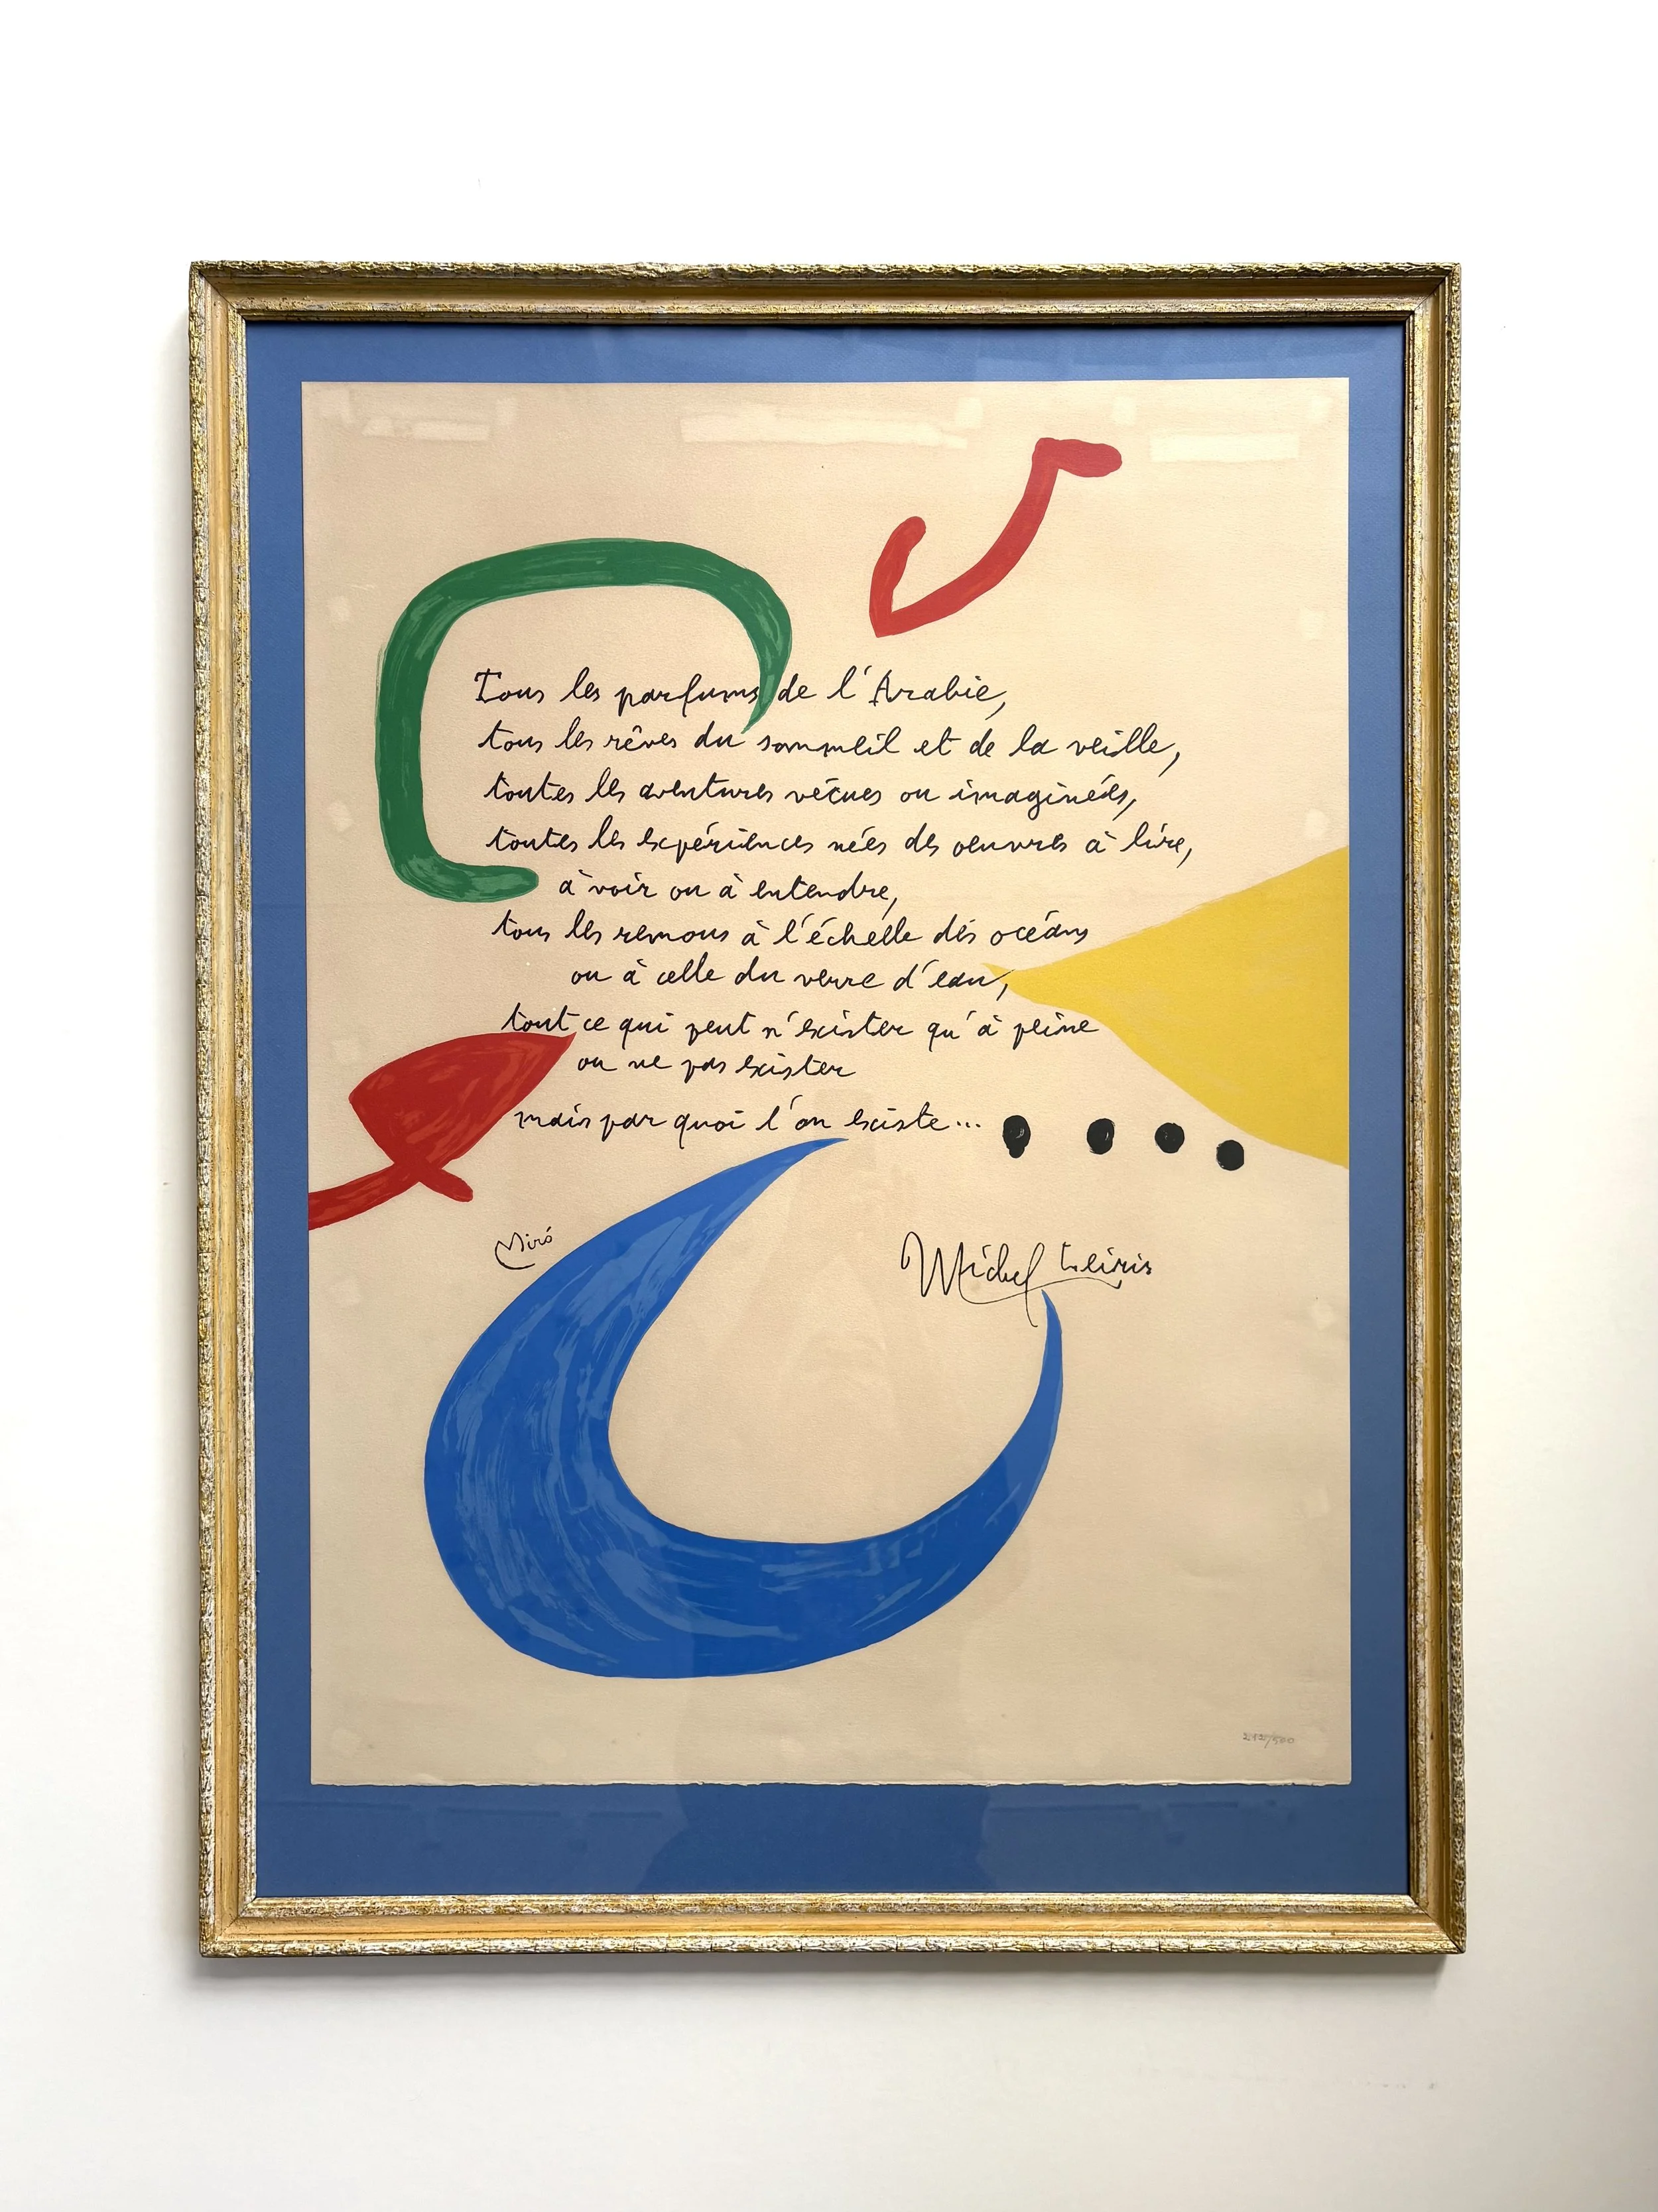 Tous les parfums de l'Arabie,
tous les rêves du sommeil et de la veille,
toutes les aventures vécues ou imaginées,
toutes les expériences nées des oeuvres à lire,
à voir ou à entendre,
tous les remous à l'échelle des océans
ou à celle du verre d'eau,
tout ce qui peut n'exister qu'à peine
ou ne pas exister
mais par quoi l'on existe...
Miró
Michel Leiris
212/500